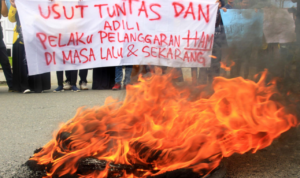 USUT TUNTAS DAN
ADILI
PELAKU PELANGGARAN HAM
DI MASA LALU & SEKARANG